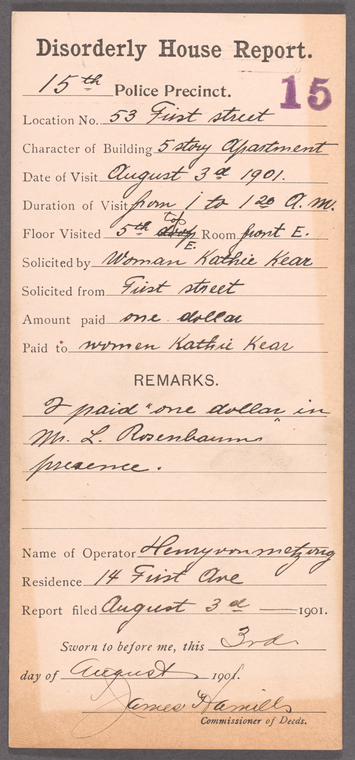 Disorderly House Report.
15th Police Precinct. 15
Location No. 53 First street
Character of Building 5 story Apartment
Date of Visit August 3d 1901.
Duration of Visit from 1 to 1 20 A. M.
top
Floor Visited 5th Room front E.
E.
Solicited by Woman Kathie Kear
Solicited from First street
Amount paid one dollar
Paid to women Kathie Kear
REMARKS.
I paid "one dollar in
Mr. L. Rosenbaums"
presence.
Name of Operator Henry von metzong
Residence 14 First Ave
Report filed August 3d — 1901.
Sworn to before me, this 3rd
day of August 1901.
James Hamills
Commissioner of Deeds.